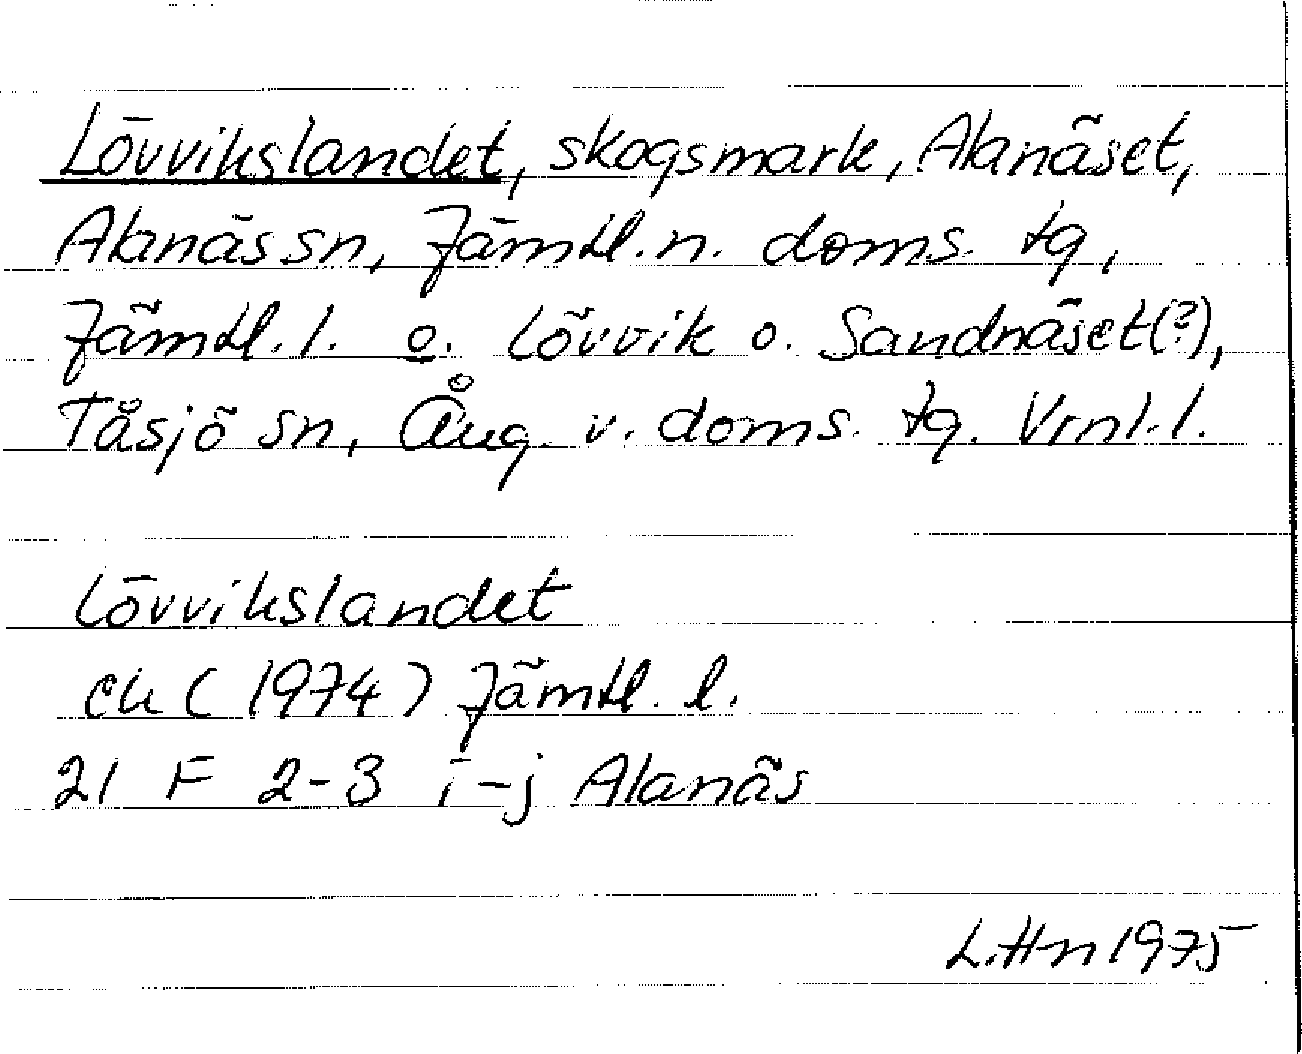 Lövvikslandet, skogsmark, Alanäset,
Alanäs sn, Jämtl. n. doms. tg,
Jämtl. l. o. Lövvik o. Sandnäset(?),
Tåsjö sn, Ång. v. doms. tg. Vrnl. l.
Lövvikslandet
ek (1974) Jämtl. l.
21 F 2-3 i-j Alanäs
L.Hn 1975